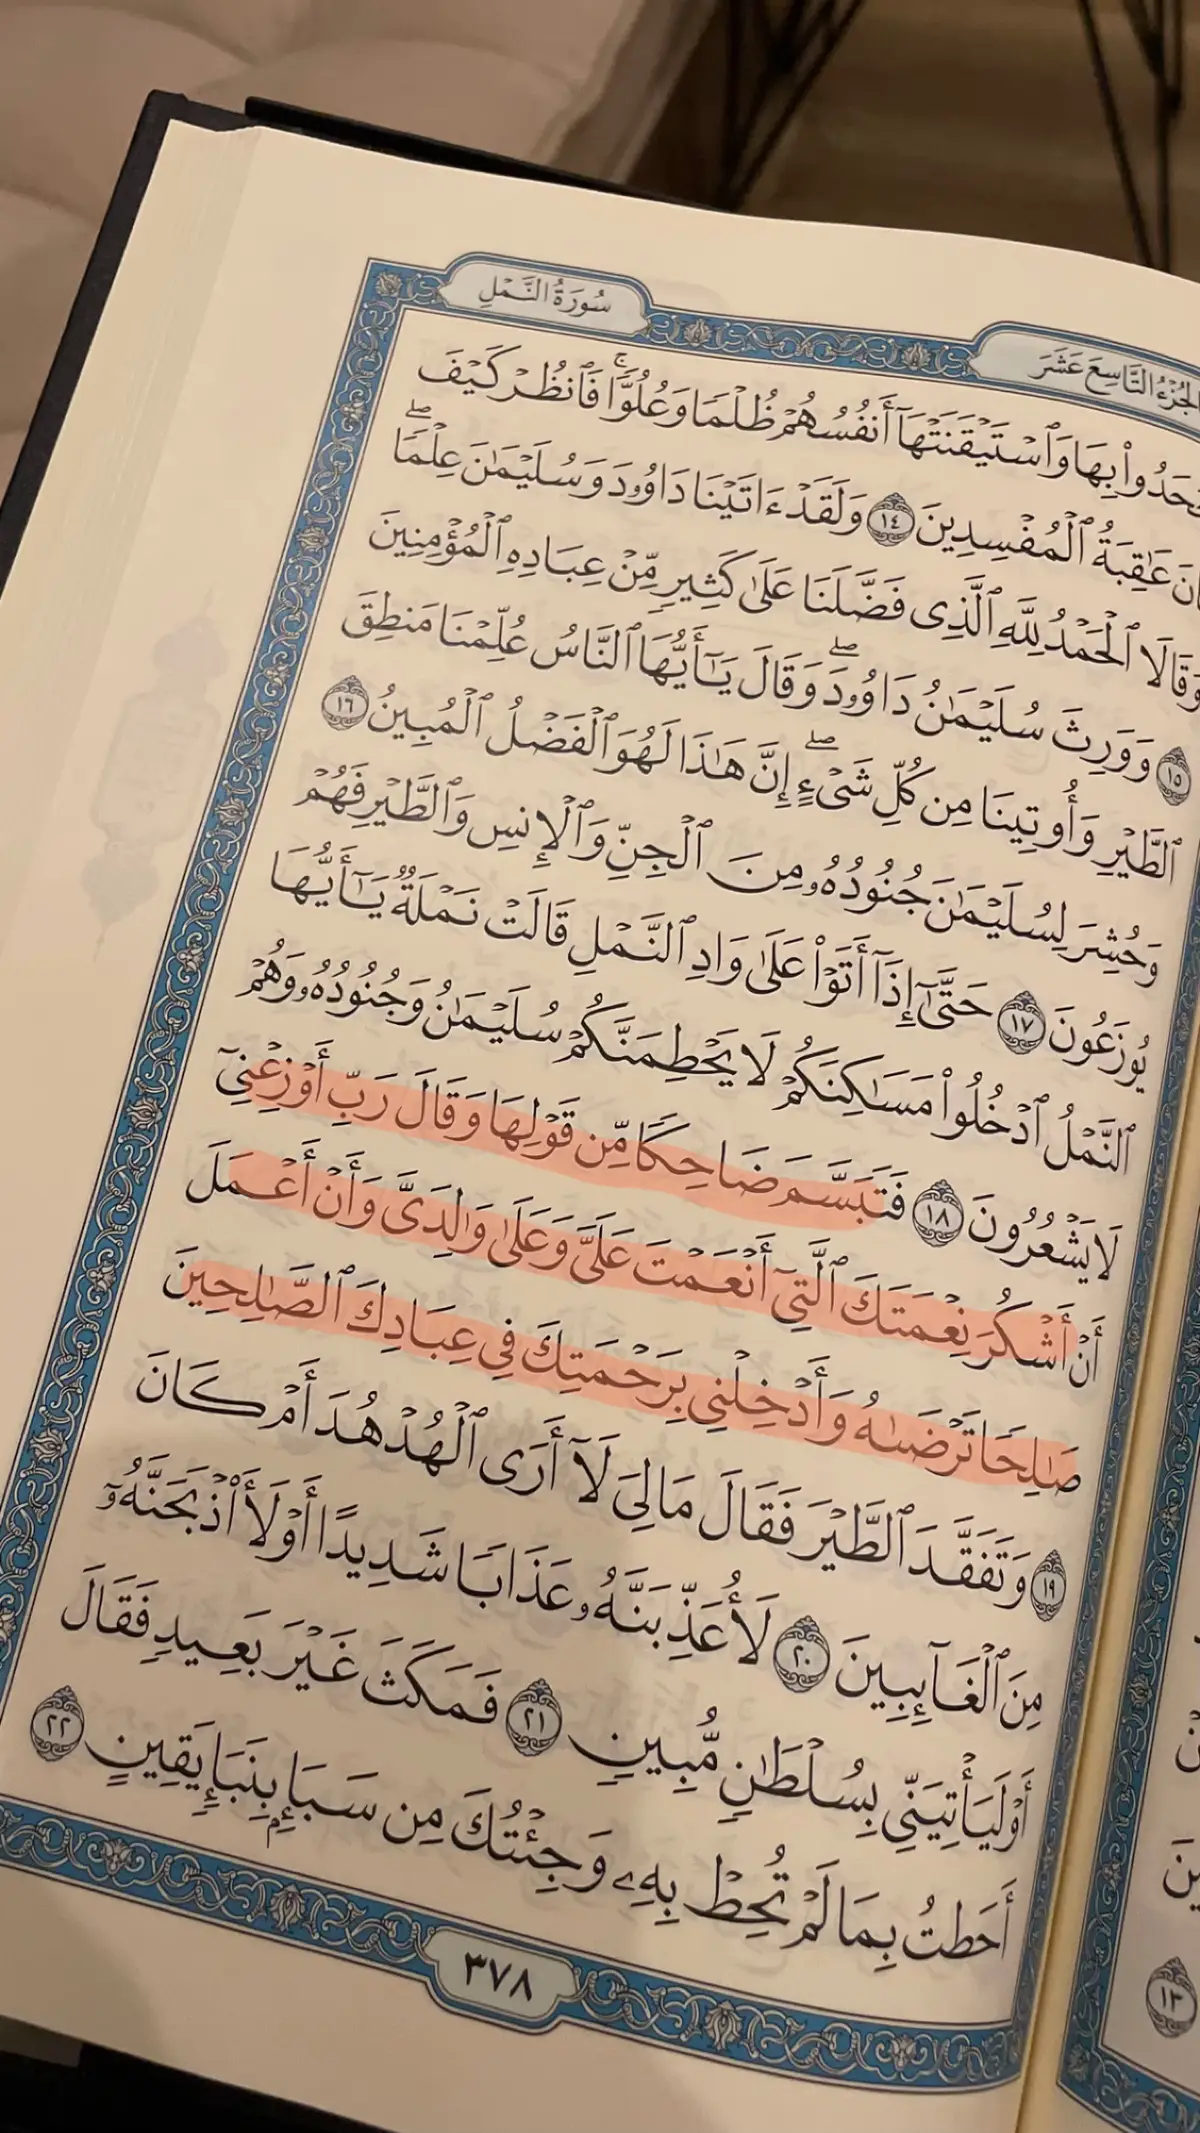 سُورَةُ النَّمْلِ
الجُزْءُ التَّاسِعَ عَشَرَ
بِهَا وَٱسْتَيْقَنَتْهَآ أَنفُسُهُمْ ظُلْمًا وَعُلُوًّا ۚ فَٱنظُرْ كَيْفَ
عَٰقِبَةُ ٱلْمُفْسِدِينَ ١٤ وَلَقَدْ ءَاتَيْنَا دَاوُۥدَ وَسُلَيْمَٰنَ عِلْمًا ۖ
وَقَالَا ٱلْحَمْدُ لِلَّهِ ٱلَّذِى فَضَّلَنَا عَلَىٰ كَثِيرٍ مِّنْ عِبَادِهِ ٱلْمُؤْمِنِينَ
١٥ وَوَرِثَ سُلَيْمَٰنُ دَاوُۥدَ ۖ وَقَالَ يَٰٓأَيُّهَا ٱلنَّاسُ عُلِّمْنَا مَنطِقَ
ٱلطَّيْرِ وَأُوتِينَا مِن كُلِّ شَىْءٍ ۖ إِنَّ هَٰذَا لَهُوَ ٱلْفَضْلُ ٱلْمُبِينُ ١٦
وَحُشِرَ لِسُلَيْمَٰنَ جُنُودُهُۥ مِنَ ٱلْجِنِّ وَٱلْإِنسِ وَٱلطَّيْرِ فَهُمْ
يُوزَعُونَ ١٧ حَتَّىٰٓ إِذَآ أَتَوْا۟ عَلَىٰ وَادِ ٱلنَّمْلِ قَالَتْ نَمْلَةٌ يَٰٓأَيُّهَا
ٱلنَّمْلُ ٱدْخُلُوا۟ مَسَٰكِنَكُمْ لَا يَحْطِمَنَّكُمْ سُلَيْمَٰنُ وَجُنُودُهُۥ وَهُمْ
لَا يَشْعُرُونَ ١٨ فَتَبَسَّمَ ضَاحِكًا مِّن قَوْلِهَا وَقَالَ رَبِّ أَوْزِعْنِىٓ
أَنْ أَشْكُرَ نِعْمَتَكَ ٱلَّتِىٓ أَنْعَمْتَ عَلَىَّ وَعَلَىٰ وَٰلِدَىَّ وَأَنْ أَعْمَلَ
صَٰلِحًا تَرْضَىٰهُ وَأَدْخِلْنِى بِرَحْمَتِكَ فِى عِبَادِكَ ٱلصَّٰلِحِينَ
١٩ وَتَفَقَّدَ ٱلطَّيْرَ فَقَالَ مَا لِىَ لَآ أَرَى ٱلْهُدْهُدَ أَمْ كَانَ
مِنَ ٱلْغَآئِبِينَ ٢٠ لَأُعَذِّبَنَّهُۥ عَذَابًا شَدِيدًا أَوْ لَأَا۟ذْبَحَنَّهُۥٓ
أَوْ لَيَأْتِيَنِّى بِسُلْطَٰنٍ مُّبِينٍ ٢١ فَمَكَثَ غَيْرَ بَعِيدٍ فَقَالَ
أَحَطتُ بِمَا لَمْ تُحِطْ بِهِۦ وَجِئْتُكَ مِن سَبَإٍۭ بِنَبَإٍ يَقِينٍ ٢٢
٣٧٨
١٣